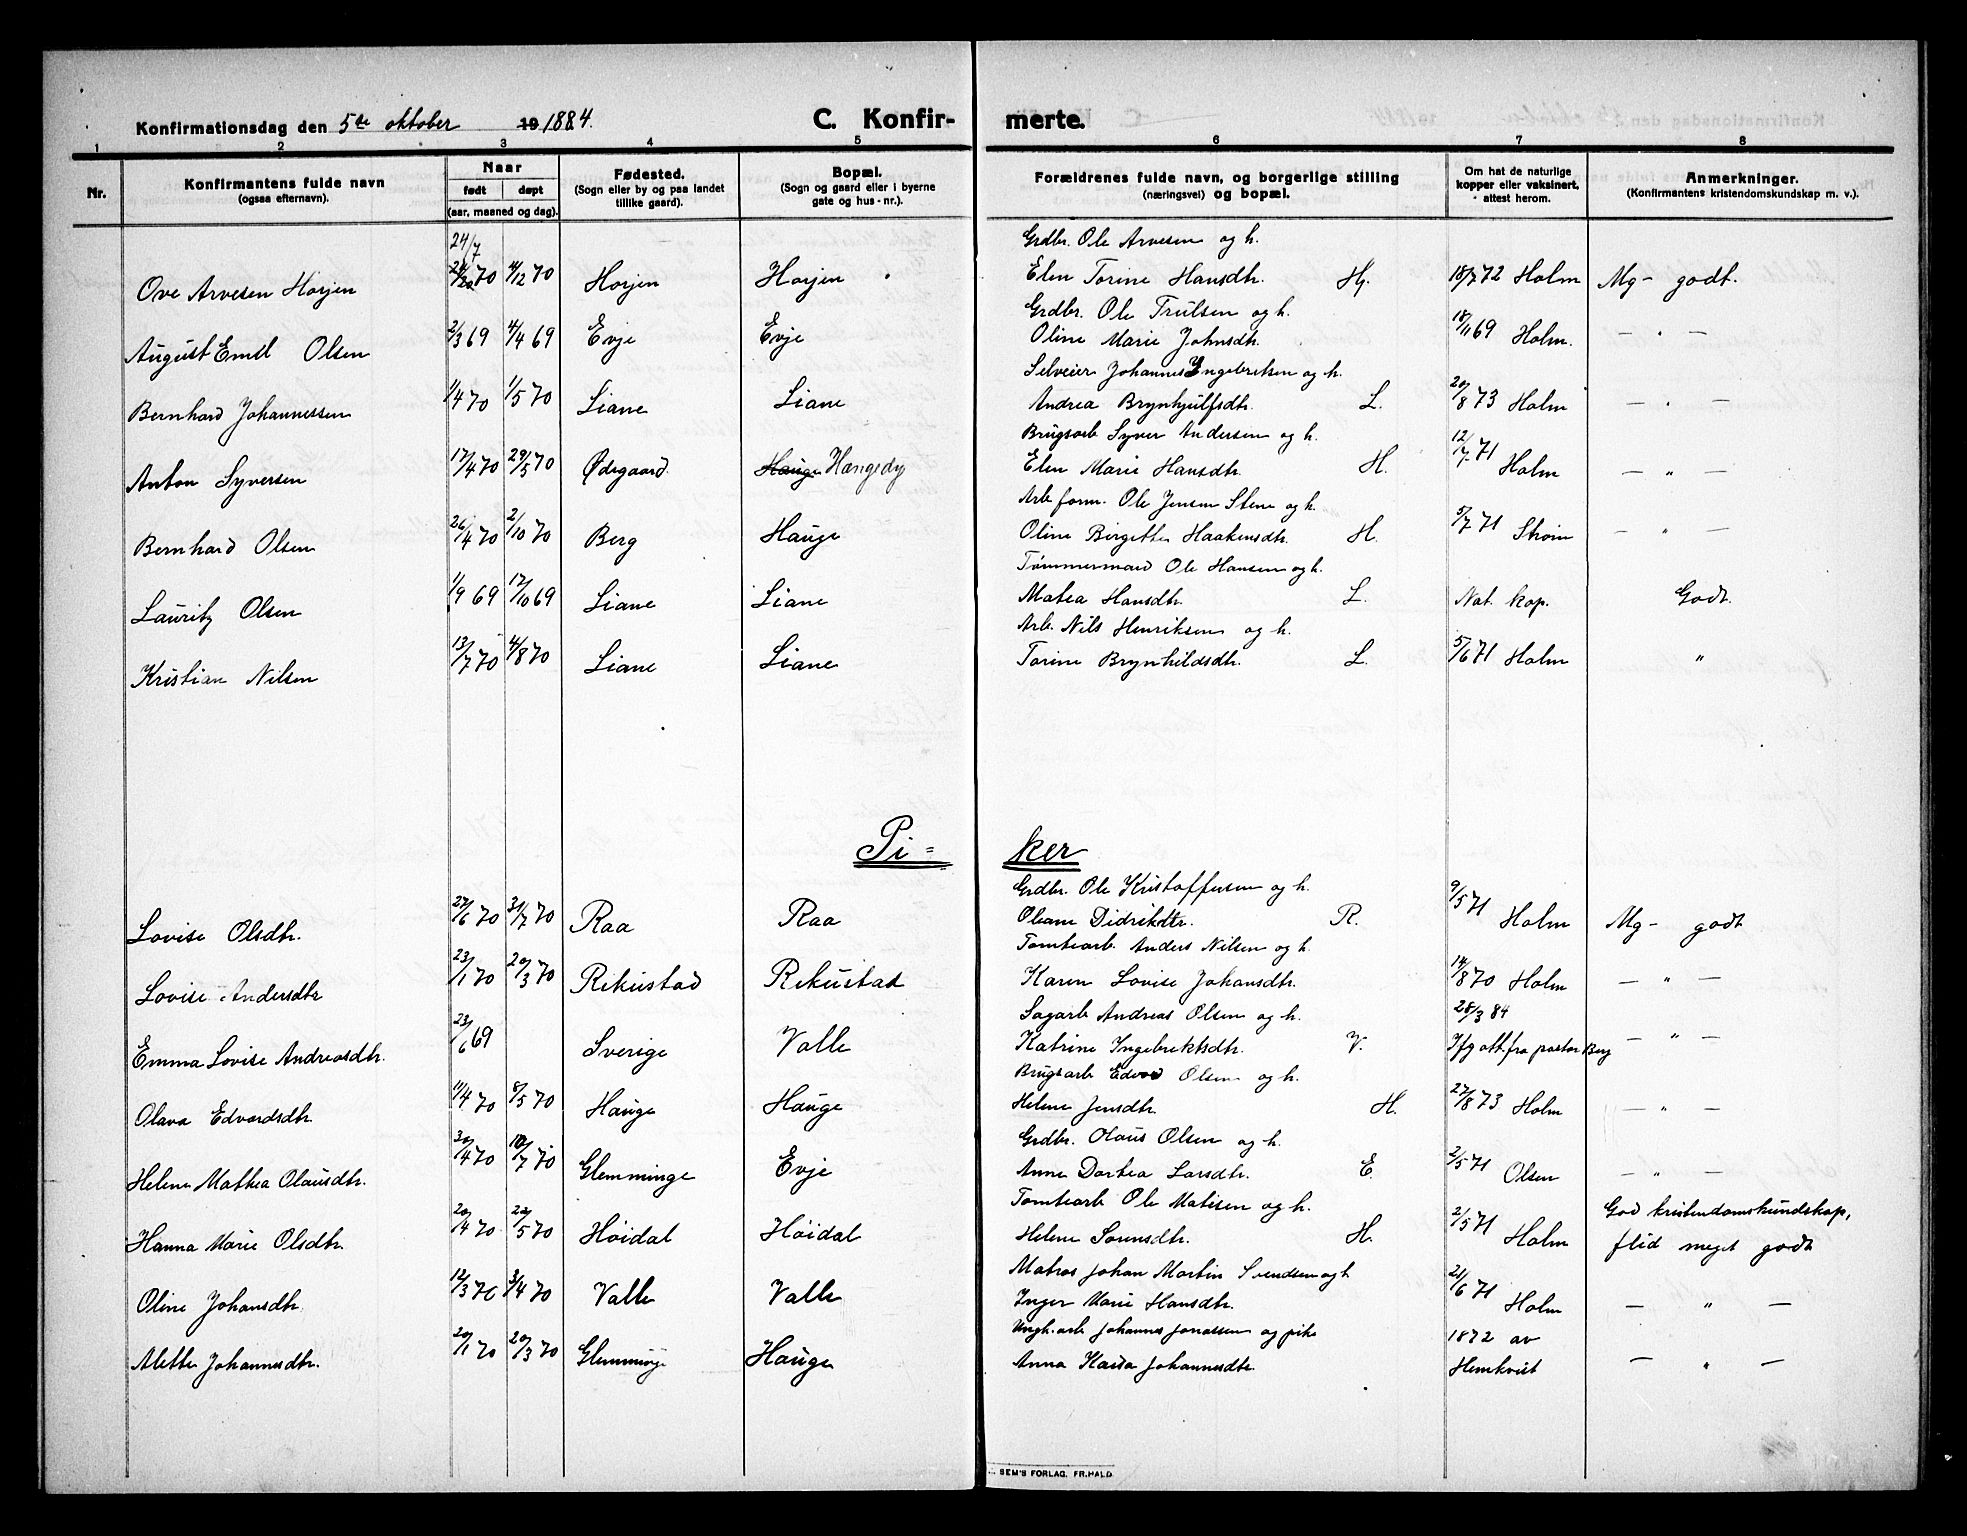 Konfirmationsdag den 5te oktober 19 1884. C. Konfir- merte.
1 2 3 4 5 6 7 8
Nr. Konfirmantens fulde navn (ogsaa efternavn). Naar født døpt (aar, maaned og dag). Fødested. (Sogn eller by og paa landet tillike gaard). Bopæl. (Sogn og gaard eller i byerne gate og hus-nr.). Forældrenes fulde navn, og borgerlige stilling (næringsvei) og bopæl. Om hat de naturlige kopper eller vaksinert, attest herom. Anmerkninger. (Konfirmantens kristendomskundskap m. v.).
24/7 Grdbr. Ole Arvesen og h.
Ove Arvesen Horjen 70 4/12 70 Horjen Horjen Elen Torine Hansdtr. Hj. 18/7 72 Holm Mg- godt.
Grdbr. Ole Trulsen og h.
August Emil Olsen 2/3 69 4/4 69 Evje Evje Oline Marie Johnsdtr. 18/11 69 Holm. — . —
Selveier Johannes Ingebretsen og h.
Bernhard Johannessen 1/4 70 1/5 70 Liane Liane Andrea Brynhjulfsdtr. L. 20/8 73 Holm — . —
Brugsarb Syver Andersen og h.
Anton Syversen 17/4 70 29/5 70 Ødegaard. Hauge Hængedy Elen Marie Hansdtr. H. 12/7 71 Holm — " —
Arb.form. Ole Jensen Stene og h.
Bernhard Olsen 26/4 70 2/10 70 Berg Hauge Oline Birgitte Haakensdtr. H. 5/7 71 Strøm — " —
Tømmermand Ole Hansen og h.
Lauritz Olsen 1/9 69 17/10 69 Liane Liane Matea Hansdtr. L. Nat. kop. Godt.
Arb. Nils Henriksen og h.
Kristian Nilsen 13/7 70 4/8 70 Liane Liane Torine Brynhildsdtr. L. 5/6 71 Holm "
Pi= ker
Grdbr. Ole Kristoffersen og h.
Lovise Olsdtr. 27/6 70 31/7 70 Raa Raa Oleane Didriksdtr. R. 9/5 71 Holm Mg- godt
Tomtearb. Anders Nilsen og h.
Lovise Andersdtr 23/1 70 20/3 70 Rekustad Rekustad Karen Lovise Johansdtr. 14/8 70 Holm — " —
Sagarb Andreas Olsen og h. 28/3 84
Emma Lovise Andreasdtr. 23/6 69 Sverige Valle Katrine Ingebrektsdtr. V. Ifg att. fra pastor Berg — " —
Brugsarb Edvard Olsen og h.
Olava Edvardsdtr. 11/4 70 8/5 70 Hauge Hauge Helene Jensdtr. H. 27/8 73 Holm — " —
Grdbr. Olaus Olsen og h.
Helene Mathea Olausdtr. 30/4 70 10/7 70 Glemminge Evje Anne Dortea Larsdtr. E. 2/5 71 Olsen — " —
Tomtearb Ole Matisen og h. God kristendomskundskap,
Hanna Marie Olsdtr. 20/4 70 22/5 70 Høidal Høidal Helene Sørensdtr. H. 2/5 71 Holm flid meget godt
Matros Johan Martin Svendsen og h
Oline Johansdtr. 12/3 70 3/4 70 Valle Valle Inger Marie Hansdtr. 21/6 71 Holm — " —
Ungk. arb Johannes Jonassen og pike 1872 av
Alette Johannesdtr. 20/1 70 20/3 70 Glemminge Hauge Anna Kaisa Johannesdtr. Hemkvist — " —
SEM'S FORLAG, FR.HALD.